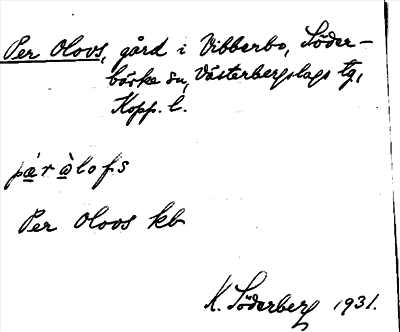 Per Olovs, gård i Vibberbo, Söder-
bärke sn, Västerbergslags tg,
Kopp. l.
Per Olovs kb
K. Söderberg 1931.